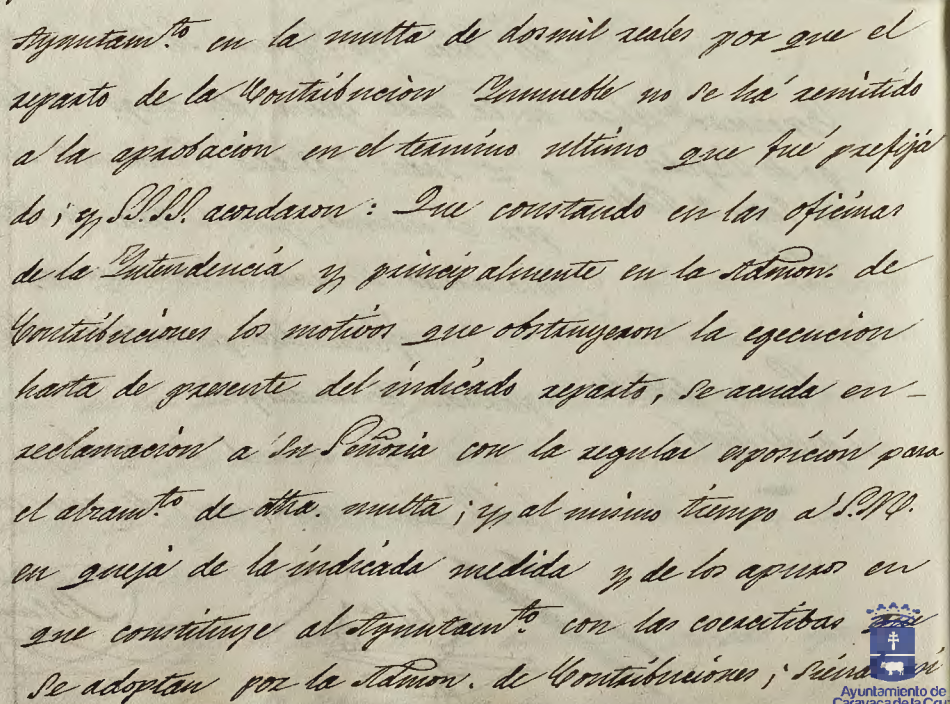 Ayuntam.to en la multa de dosmil reales por que el
reparto de la Contribucion Inmueble no se há remitido
á la aprobacion en el termino ultimo que fué prefija
do; y S.S.S.S. acordaron: Que constando en las oficinas
de la Intendencia y principalmente en la Admon. de
Contribuciones los motivos que obstruyeron la egecucion
hasta de presente del indicado reparto, se acuda en-
reclamacion á Su Señoria con la regular esposicion para
el alzam.to de dha. multa; y al mismo tiempo a S.M.
en queja de la indicada medida y de los apuros en
que constituye al Ayuntam.to con las coercitibas que
se adoptan por la Admon. de Contribuciones;
Ayuntamiento de
Caravaca de la Cru